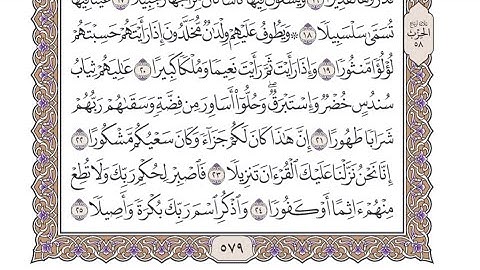 تُسَمَّىٰ سَلْسَبِيلًا ١٨ ۞ وَيَطُوفُ عَلَيْهِمْ وِلْدَٰنٌ مُّخَلَّدُونَ إِذَا رَأَيْتَهُمْ حَسِبْتَهُمْ
لُؤْلُؤًا مَّنثُورًا ١٩ وَإِذَا رَأَيْتَ ثَمَّ رَأَيْتَ نَعِيمًا وَمُلْكًا كَبِيرًا ٢٠ عَٰلِيَهُمْ ثِيَابُ
سُندُسٍ خُضْرٌ وَإِسْتَبْرَقٌ ۖ وَحُلُّوٓا۟ أَسَاوِرَ مِن فِضَّةٍ وَسَقَىٰهُمْ رَبُّهُمْ
شَرَابًا طَهُورًا ٢١ إِنَّ هَٰذَا كَانَ لَكُمْ جَزَآءً وَكَانَ سَعْيُكُم مَّشْكُورًا ٢٢
إِنَّا نَحْنُ نَزَّلْنَا عَلَيْكَ ٱلْقُرْءَانَ تَنزِيلًا ٢٣ فَٱصْبِرْ لِحُكْمِ رَبِّكَ وَلَا تُطِعْ
مِنْهُمْ ءَاثِمًا أَوْ كَفُورًا ٢٤ وَٱذْكُرِ ٱسْمَ رَبِّكَ بُكْرَةً وَأَصِيلًا ٢٥
٥٧٩
الحزب
٥٨